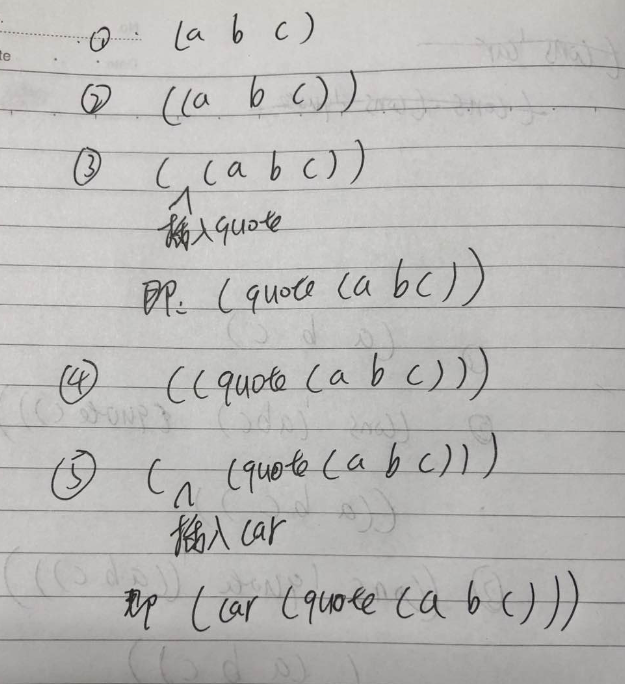 ① (a b c)
② ((a b c))
③ ( (a b c))
插入quote
即: (quote (a b c))
④ ((quote (a b c)))
⑤ ( (quote (a b c)))
插入 car
即 (car (quote (a b c)))